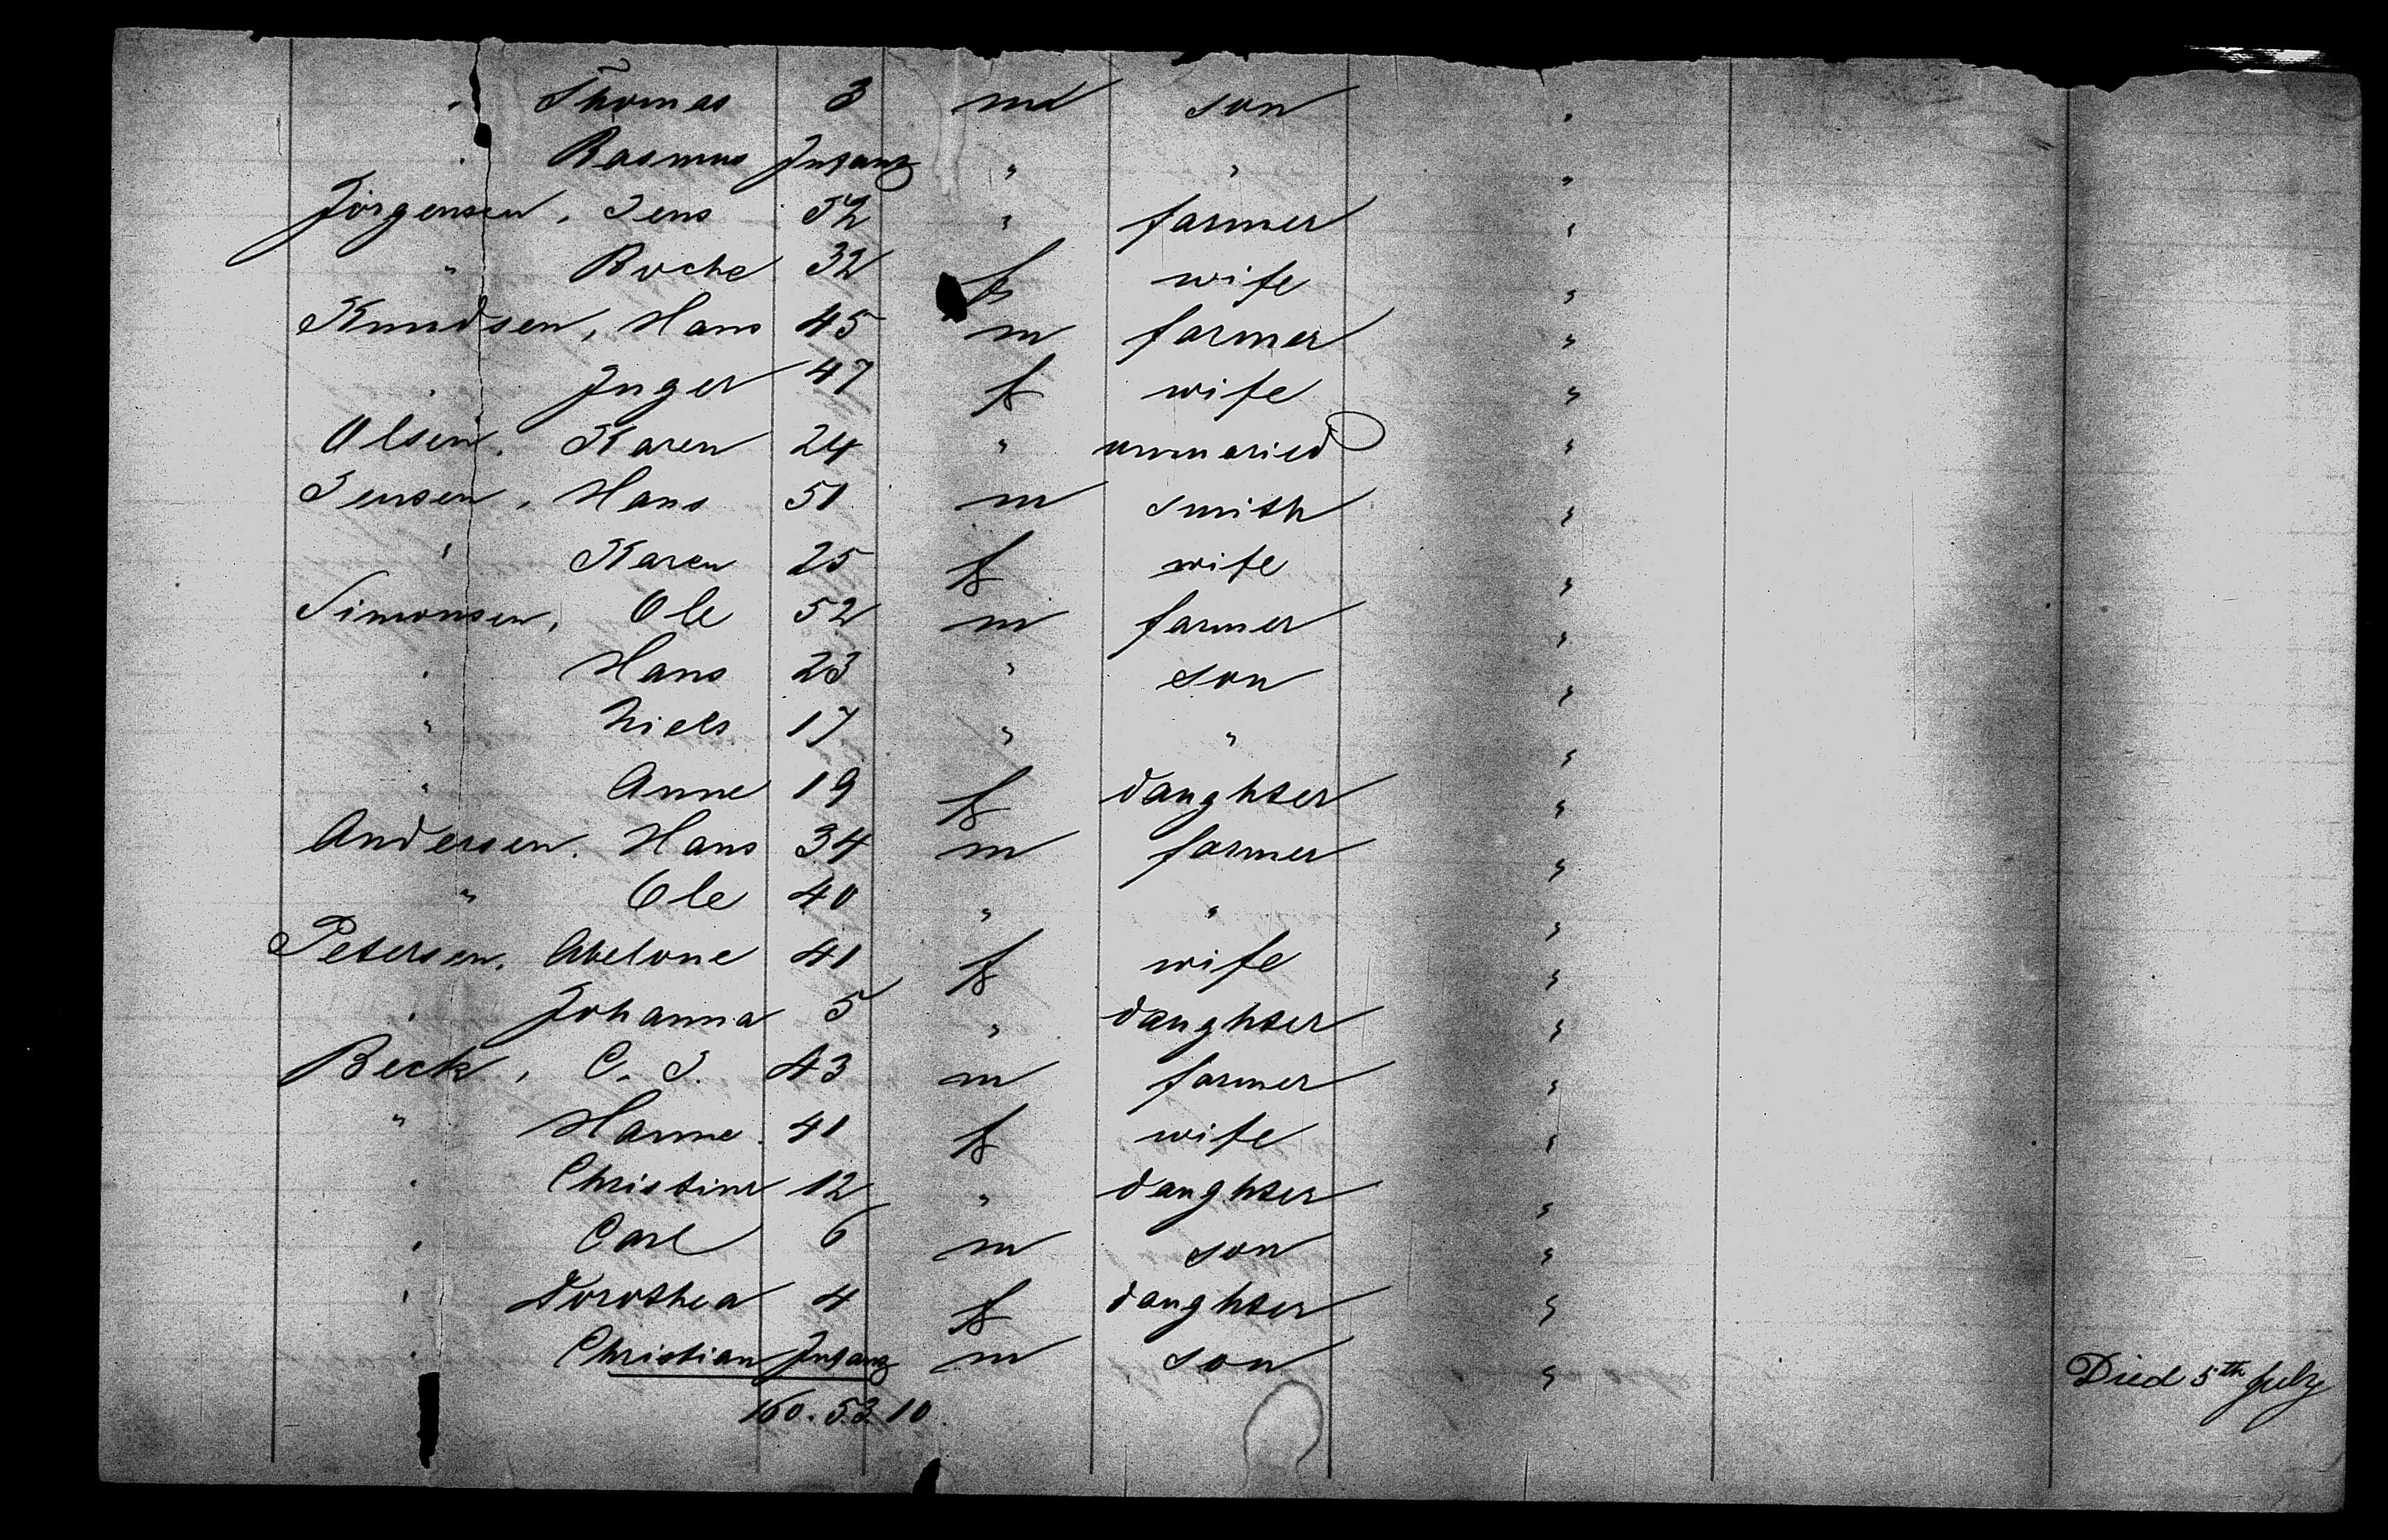 " Thomas 3 m son "
" Rasmus Infant " " "
Jörgensen, Jens 52 " farmer "
" Boche 32 f wife "
Knudsen, Hans 45 m farmer "
" Inger 47 f wife "
Olsen, Karen 24 " unmaried "
Jensen, Hans 51 m smith "
" Karen 25 f wife "
Simonsen, Ole 52 m farmer "
" Hans 23 " son "
" Niels 17 " " "
" Anne 19 f daughter "
Andersen, Hans 34 m farmer "
" Ole 40 " " "
Petersen, Abelone 41 f wife "
" Johanna 5 " daughter "
Beck, C. J. 43 m farmer "
" Hanne 41 f wife "
" Christine 12 " daughter "
" Carl 6 m son "
" Dorothea 4 f daughter "
" Christian Infant m son " Died 5th July
160. 53. 10.